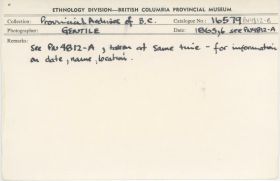 ETHNOLOGY DIVISION—BRITISH COLUMBIA PROVINCIAL MUSEUM
Collection: Provincial Archives of B.C. Catalogue No.: 16579 PN4812-B
Photographer: GENTILE Date: 1863,6 see PN4812-A
Remarks:
see PN4812-A, taken at same time - for information
on date, name, location.